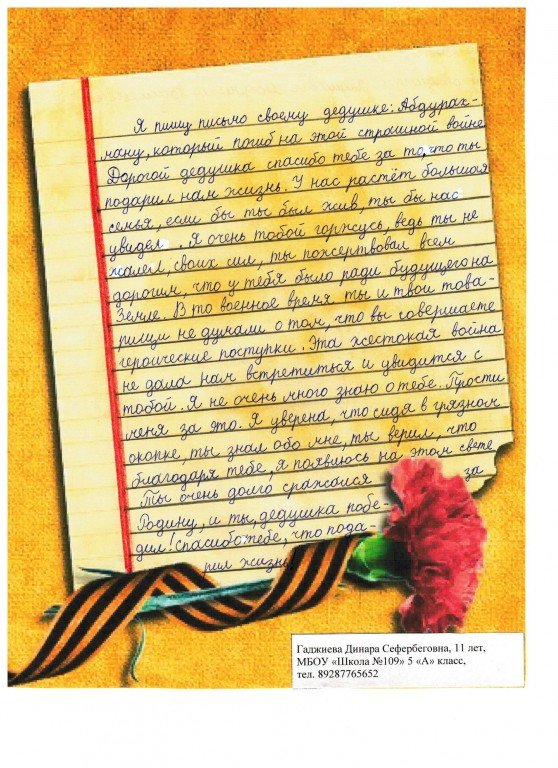 Я пишу письмо своему дедушке: Абдурах-
ману, который погиб на этой страшной войне
Дорогой дедушка спасибо тебе за то, что ты
подарил нам жизнь. У нас растёт большая
семья, если бы ты был жив, ты бы нас
увидел . Я очень тобой горжусь, ведь ты не
жалел, своих сил, ты пожертвовал всем
дорогим, что у тебя было ради будущего на
Земле. В то военное время ты и твои това-
рищи не думали о том, что вы совершаете
героические поступки. Эта жестокая война
не дала нам встретиться и увидится с
тобой. Я не очень много знаю о тебе. Прости
меня за это. Я уверена, что сидя в грязном
окопке, ты знал обо мне, ты верил, что
благодаря тебе, я появлюсь на этом свете
Ты очень долго сражался за
Родину, и ты, дедушка побе-
дил! Спасибо тебе, что пода-
рил жизнь!
Гаджиева Динара Сефербеговна, 11 лет,
МБОУ «Школа №109» 5 «А» класс,
тел. 89287765652